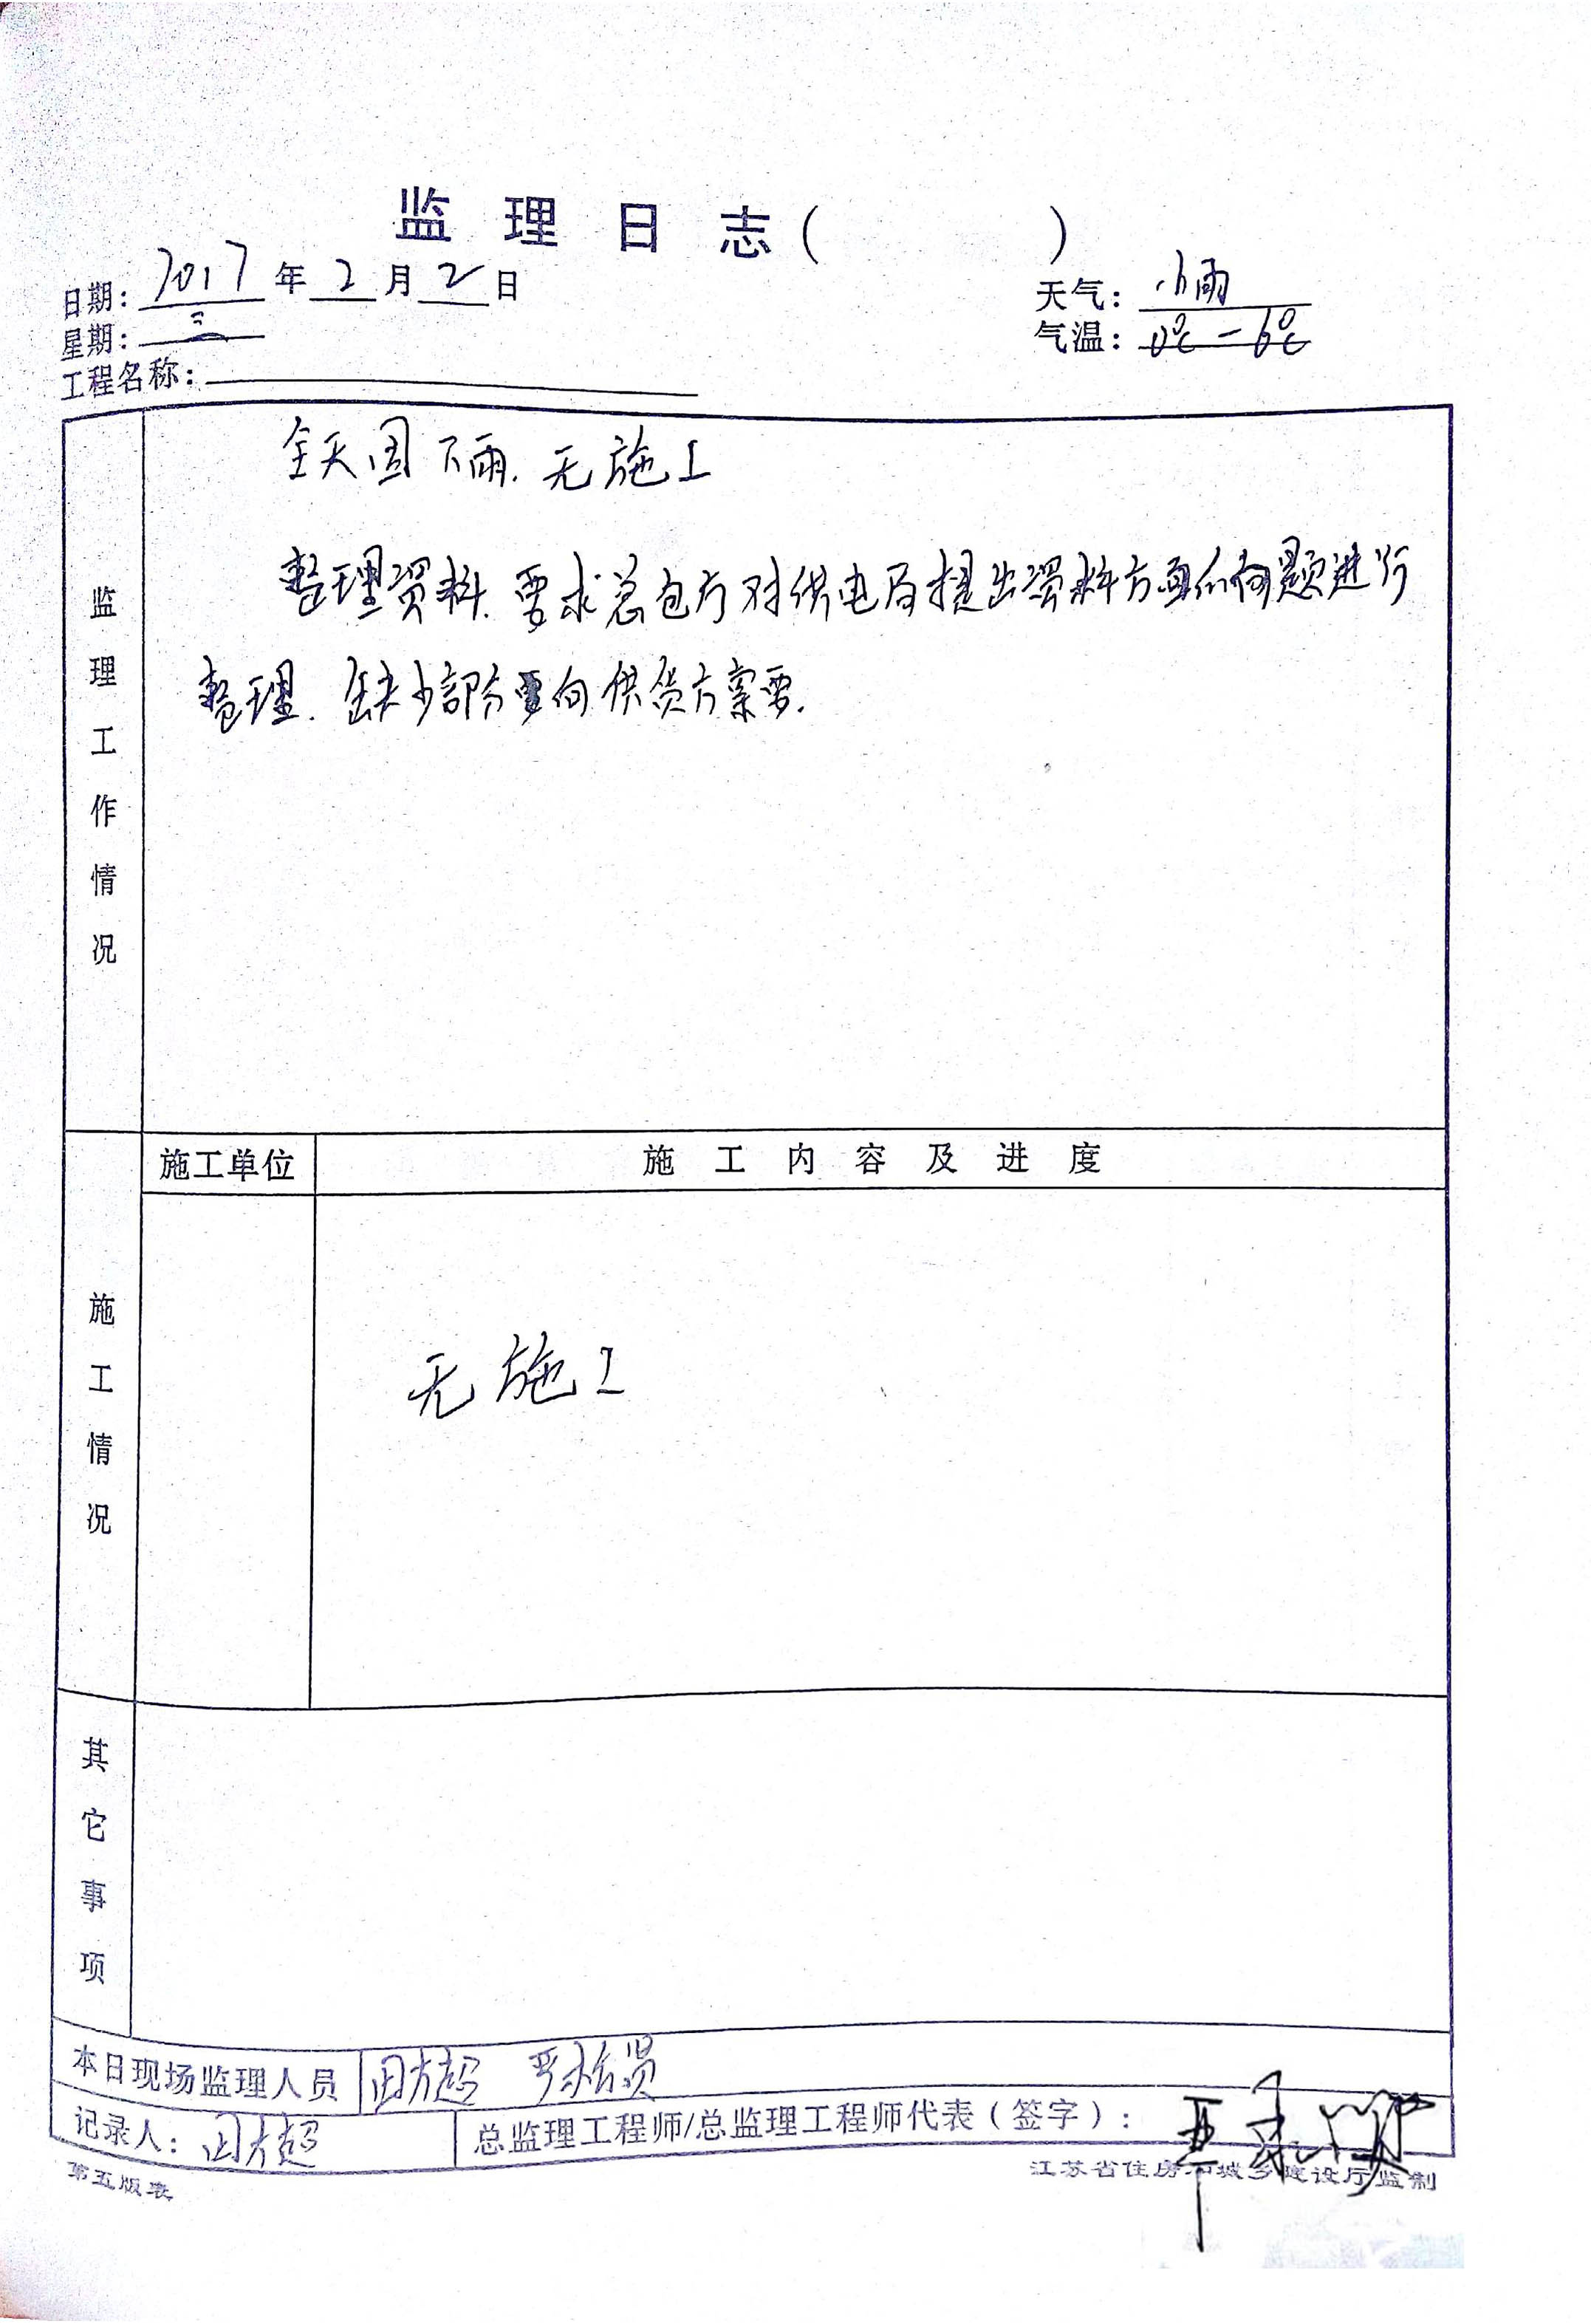 监理日志（ ）
日期：2017年2月2日
天气：小雨
星期：三
气温：0℃－6℃
工程名称：
监理工作情况
全天因下雨.无施工
整理资料.要求总包方对供电局提出资料方面的问题进行
整理.缺少部分要向供货方索要.
施工情况
施工单位 施工内容及进度
无施工
其它事项
本日现场监理人员 田方超
记录人：田方超 总监理工程师/总监理工程师代表（签字）：
第五版表 江苏省住房和城乡建设厅监制